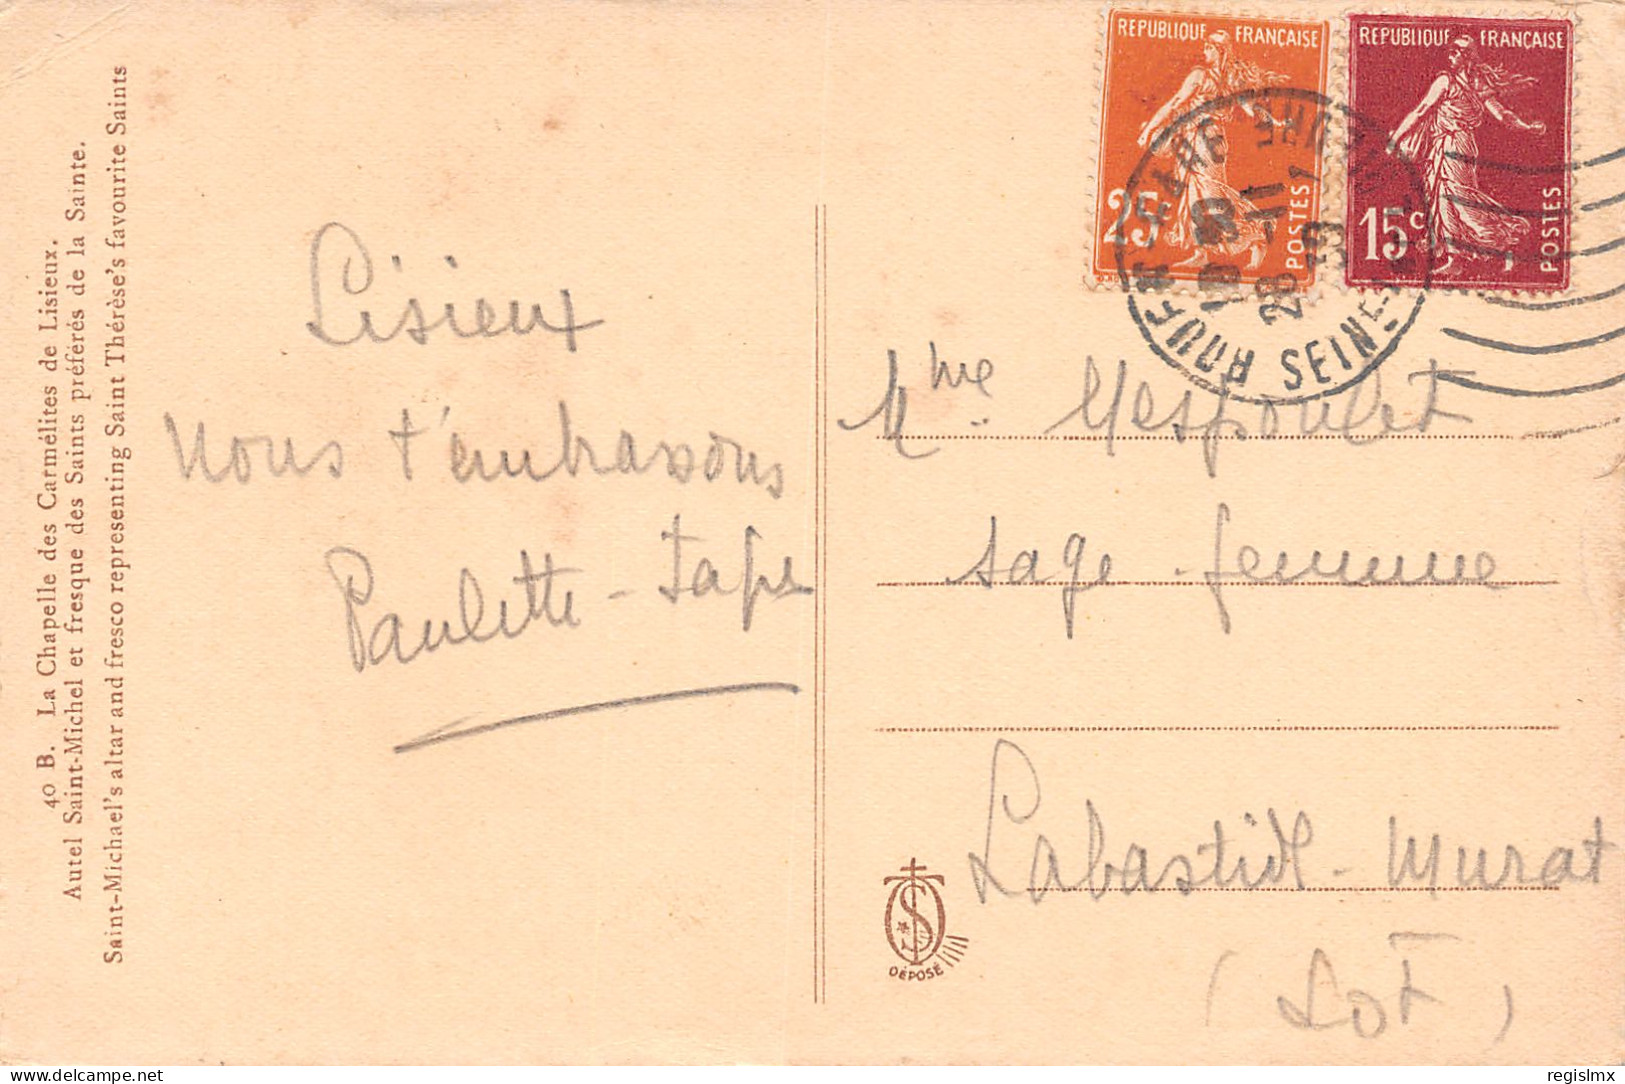 40 B. La Chapelle des Carmélites de Lisieux.
Autel Saint-Michel et fresque des Saints préférés de la Sainte.
Saint-Michael's altar and fresco representing Saint Thérèse's favourite Saints
Lisieux
Nous t'embrassons
Paulette -
REPUBLIQUE FRANÇAISE
25c
POSTES
REPUBLIQUE FRANÇAISE
15c
POSTES
ROUEN GARE
SEINE-INFRE
28 -11
Mme Mespoulet
sage-femme
Labastide-Murat
(Lot)
DÉPOSÉ
regislmx